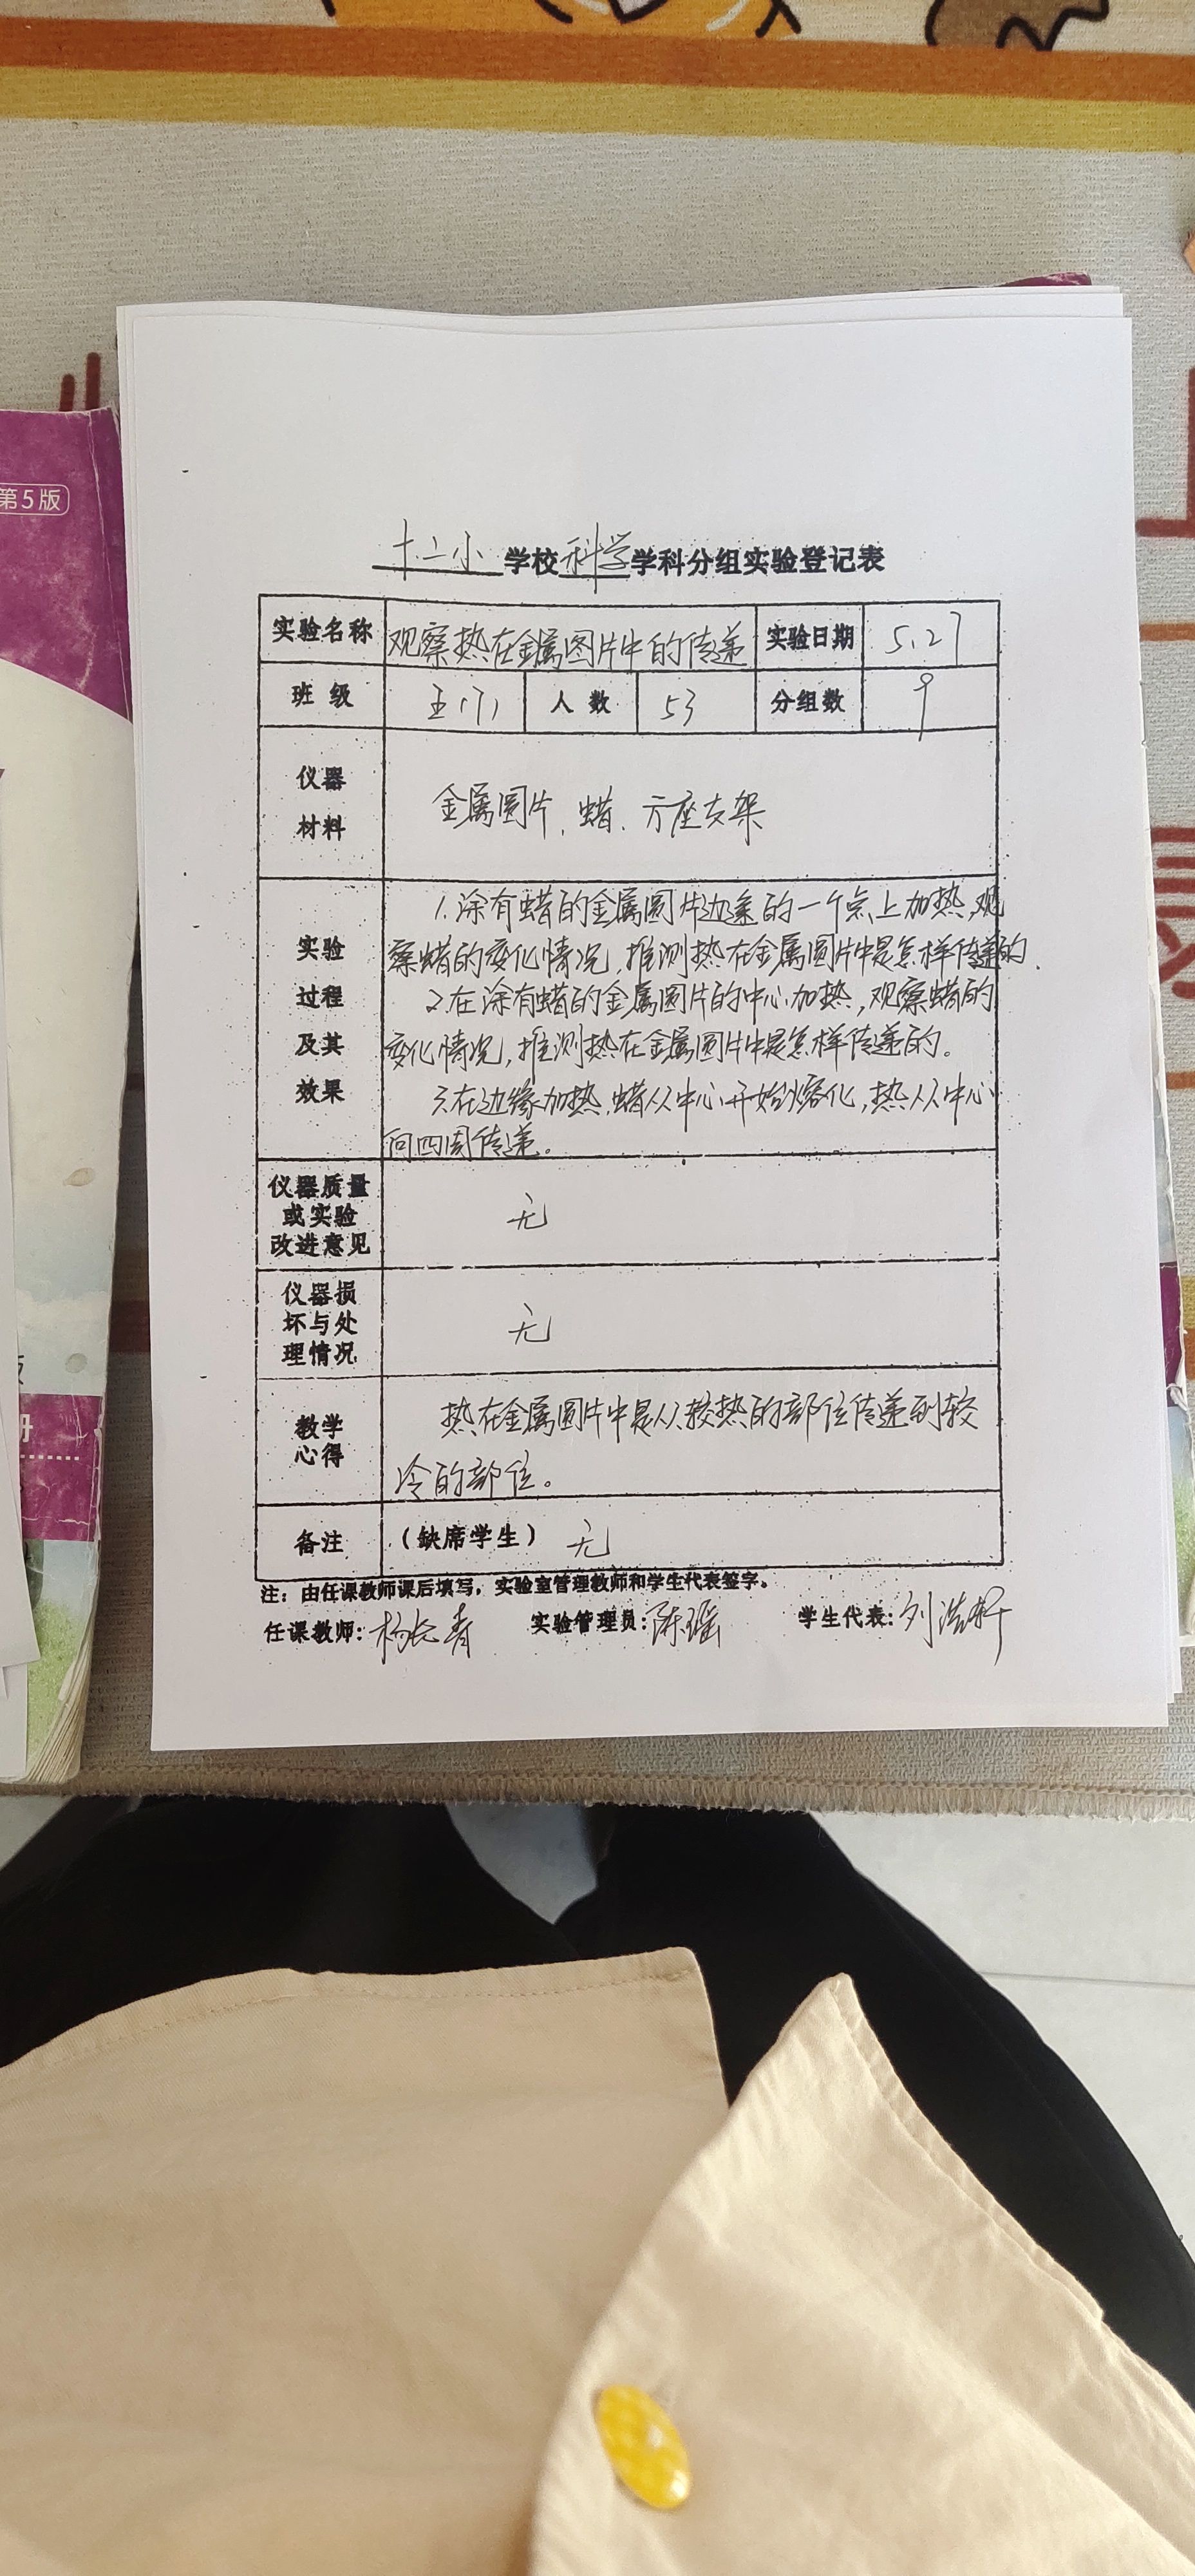 第5版
十二小学校科学学科分组实验登记表
实验名称 观察热在金属图片中的传递 实验日期 5.27
班级 五(7) 人数 53 分组数 9
仪器
材料
金属圆片、蜡、方座支架
实验
过程
及其
效果
1.涂有蜡的金属圆片边缘的一个点上加热,观
察蜡的变化情况,推测热在金属圆片中是怎样传递的.
2.在涂有蜡的金属圆片的中心加热,观察蜡的
变化情况,推测热在金属圆片中是怎样传递的。
3.在边缘加热,蜡从中心开始熔化,热从中心
向四周传递。
仪器质量
或实验
改进意见
无
仪器损
坏与处
理情况
无
教学
心得
热在金属圆片中是从较热的部位传递到较
冷的部位。
备注 (缺席学生) 无
注:由任课教师课后填写,实验室管理教师和学生代表签字。
任课教师:杨长青 实验管理员:陈瑶 学生代表:刘浩轩